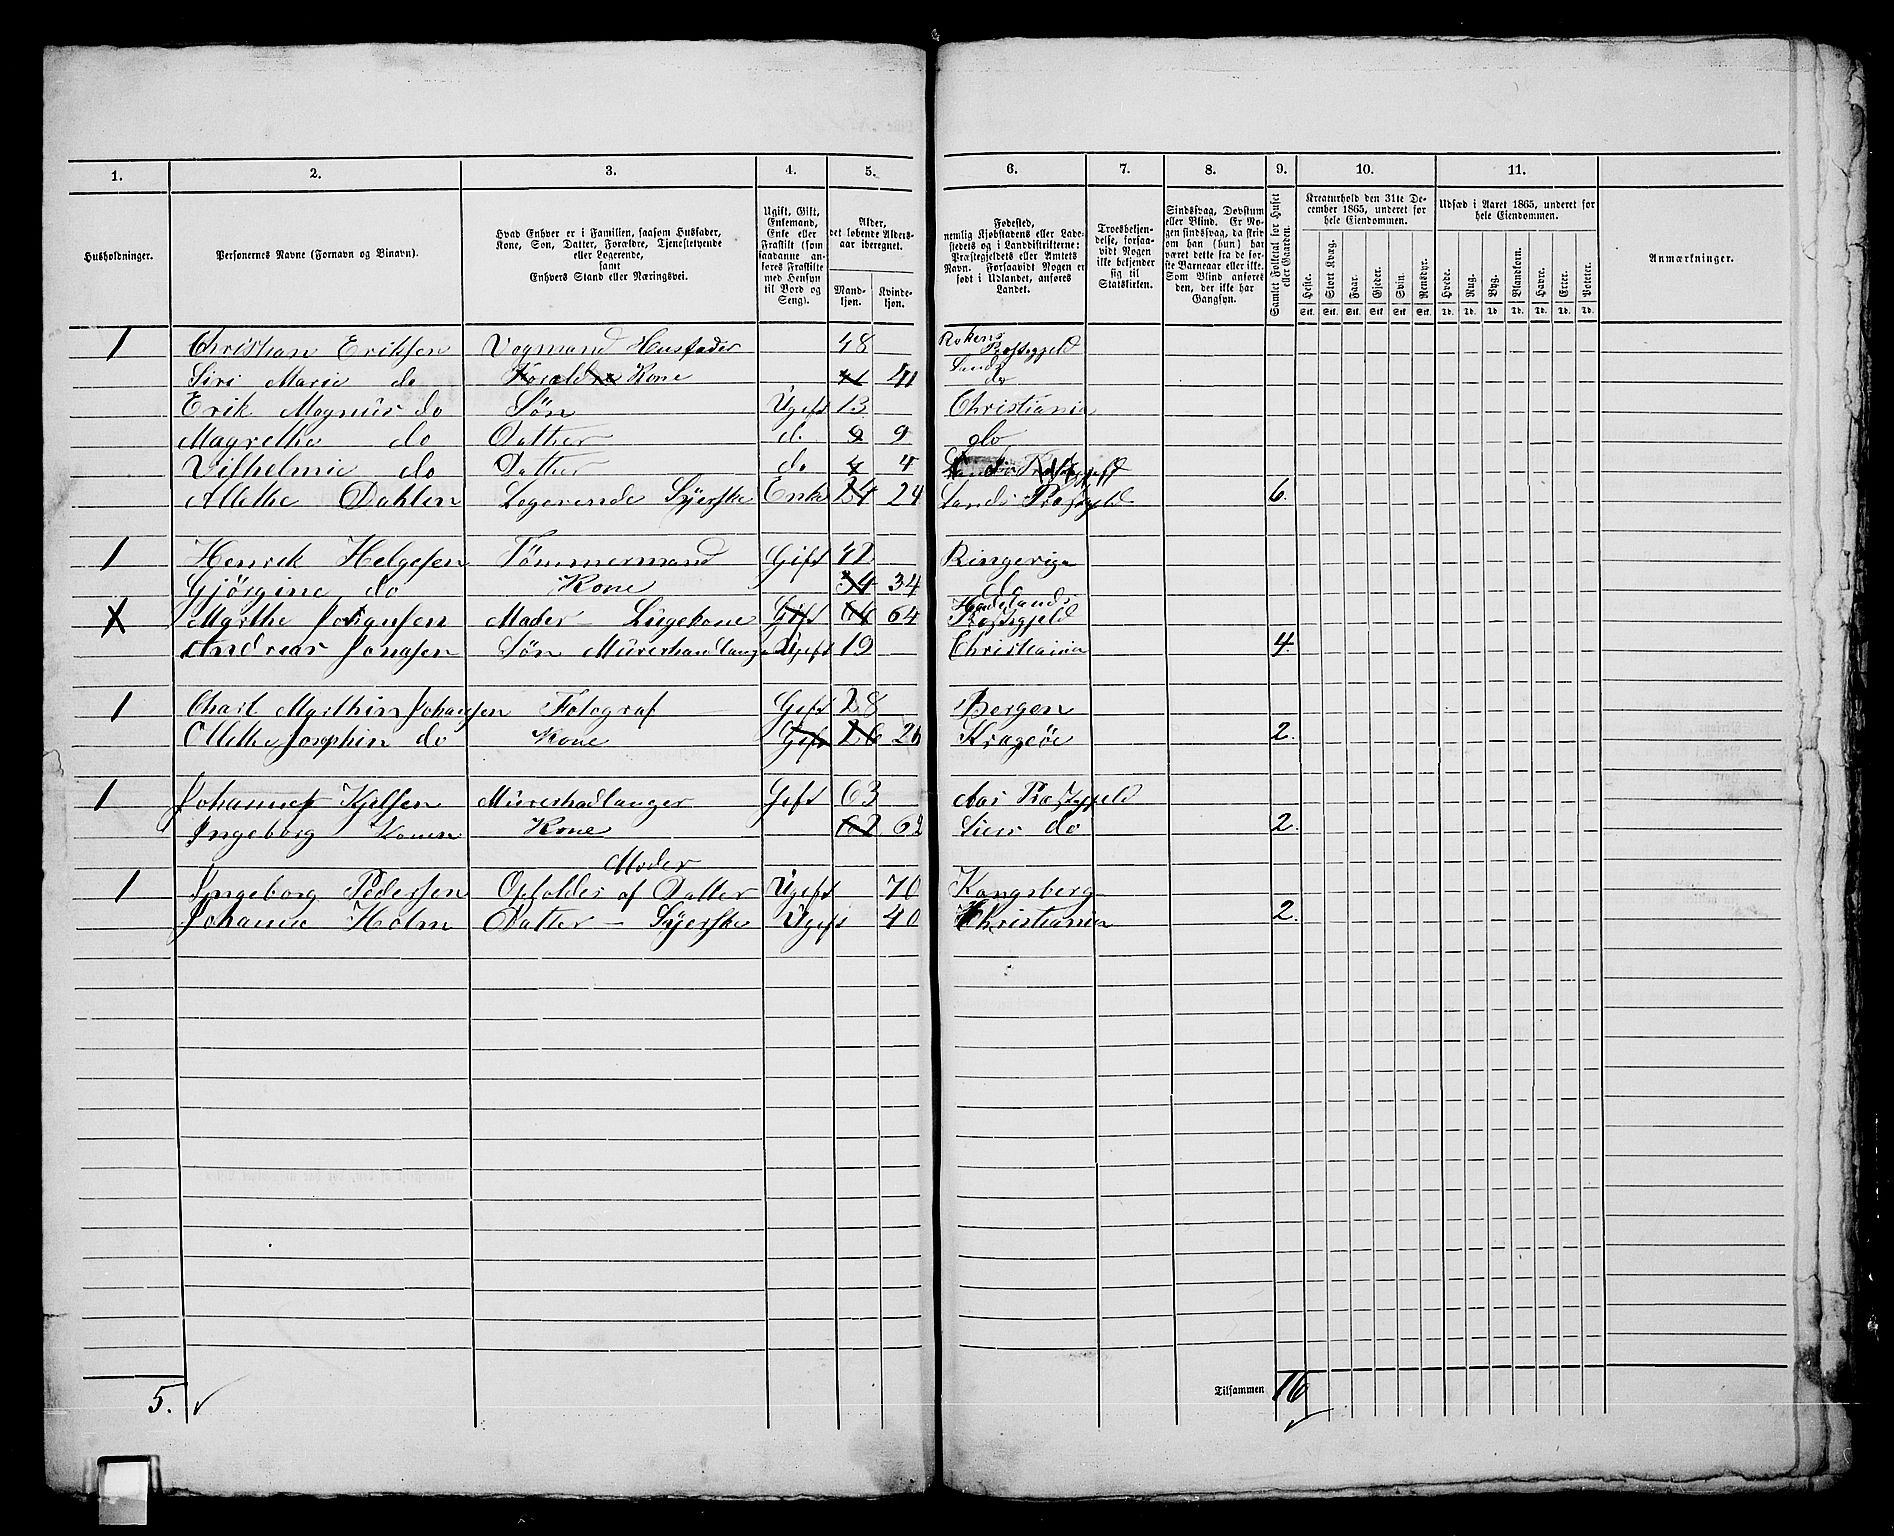 1. 2. 3. 4. 5. 6. 7. 8. 9. 10. 11.
Husholdninger.
Personernes Navne (Fornavn og Binavn).
Hvad Enhver er i Familien, saasom Husfader,
Kone, Søn, Datter, Forældre, Tjenestetyende
eller Logerende,
samt
Enhvers Stand eller Næringsvei.
Ugift, Gift,
Enkemand,
Enke eller
Fraskilt (som
saadanne an-
føres Fraskilte
med Hensyn
til Bord og
Seng).
Alder,
det løbende Alders-
aar iberegnet.
Mand-
kjøn.
Kvinde-
kjøn.
Fødested,
nemlig Kjøbstadens eller Lade-
stedets og i Landdistrikterne:
Præstegjeldets eller Amtets
Navn. Forsaavidt Nogen er
født i Udlandet, anføres
Landet.
Troesbekjen-
delse, forsaa-
vidt Nogen
ikke bekjender
sig til
Statskirken.
Sindssvag, Døvstum
eller Blind. Er No-
gen sindssvag, da skriv
om han (hun) har
været dette fra de før-
ste Barneaar eller ikke.
Som Blind anføres
den, der ikke har
Gangsyn.
Samlet Folketal for Huset
eller Gaarden.
Kreaturhold den 31te De-
cember 1865, underet for
hele Eiendommen.
Heste. Stort Kvæg. Faar. Gjeder. Svin. Rensdyr.
Stk. Stk. Stk. Stk. Stk. Stk.
Udsæd i Aaret 1865, underet for
hele Eiendommen.
Hvede. Rug. Byg. Blandkorn. Havre. Erter. Poteter.
Td. Td. Td. Td. Td. Td. Td.
Anmærkninger.
1 Christian Eriksen Vogmand Husfader 48 Røkens Præstegjeld
Siri Marie do Kone 41 Lands do
Erik Magnus do Søn Ugift 13 Christiania
Magrethe do Datter do 9 do
Vilhelmie do Datter do 4
Allethe Dahlen Logerende Syerske Enke 24 24 Lands Præstegjeld 6.
1 Henrik Helgesen Tømmermand Gift 42 Ringerige
Gjørgine do Kone 34 34 do
X Marthe Johansen Moder – Liigekone Gift 64 64 Hadelands Præstegjeld
Andreas Jonasen Søn Murerhandlanger Ugift 19 Christiania 4.
1 Charl Marthin Johansen Fotograf Gift 28 Bergen
Ollethe Josephin do Kone Gift 26 26 Krageøe 2.
1 Johannes Kjelsen Murerhadlanger Gift 63 Aas Præstegjeld
Ingeborg Konen Kone 62 62 Liers do 2.
Moder
1 Ingeborg Pedersen Opholdes af Datter Ugift 70 Kongsberg
Johanne Holm Datter – Syerske Ugift 40 Christiania 2.
5. Tilsammen 16